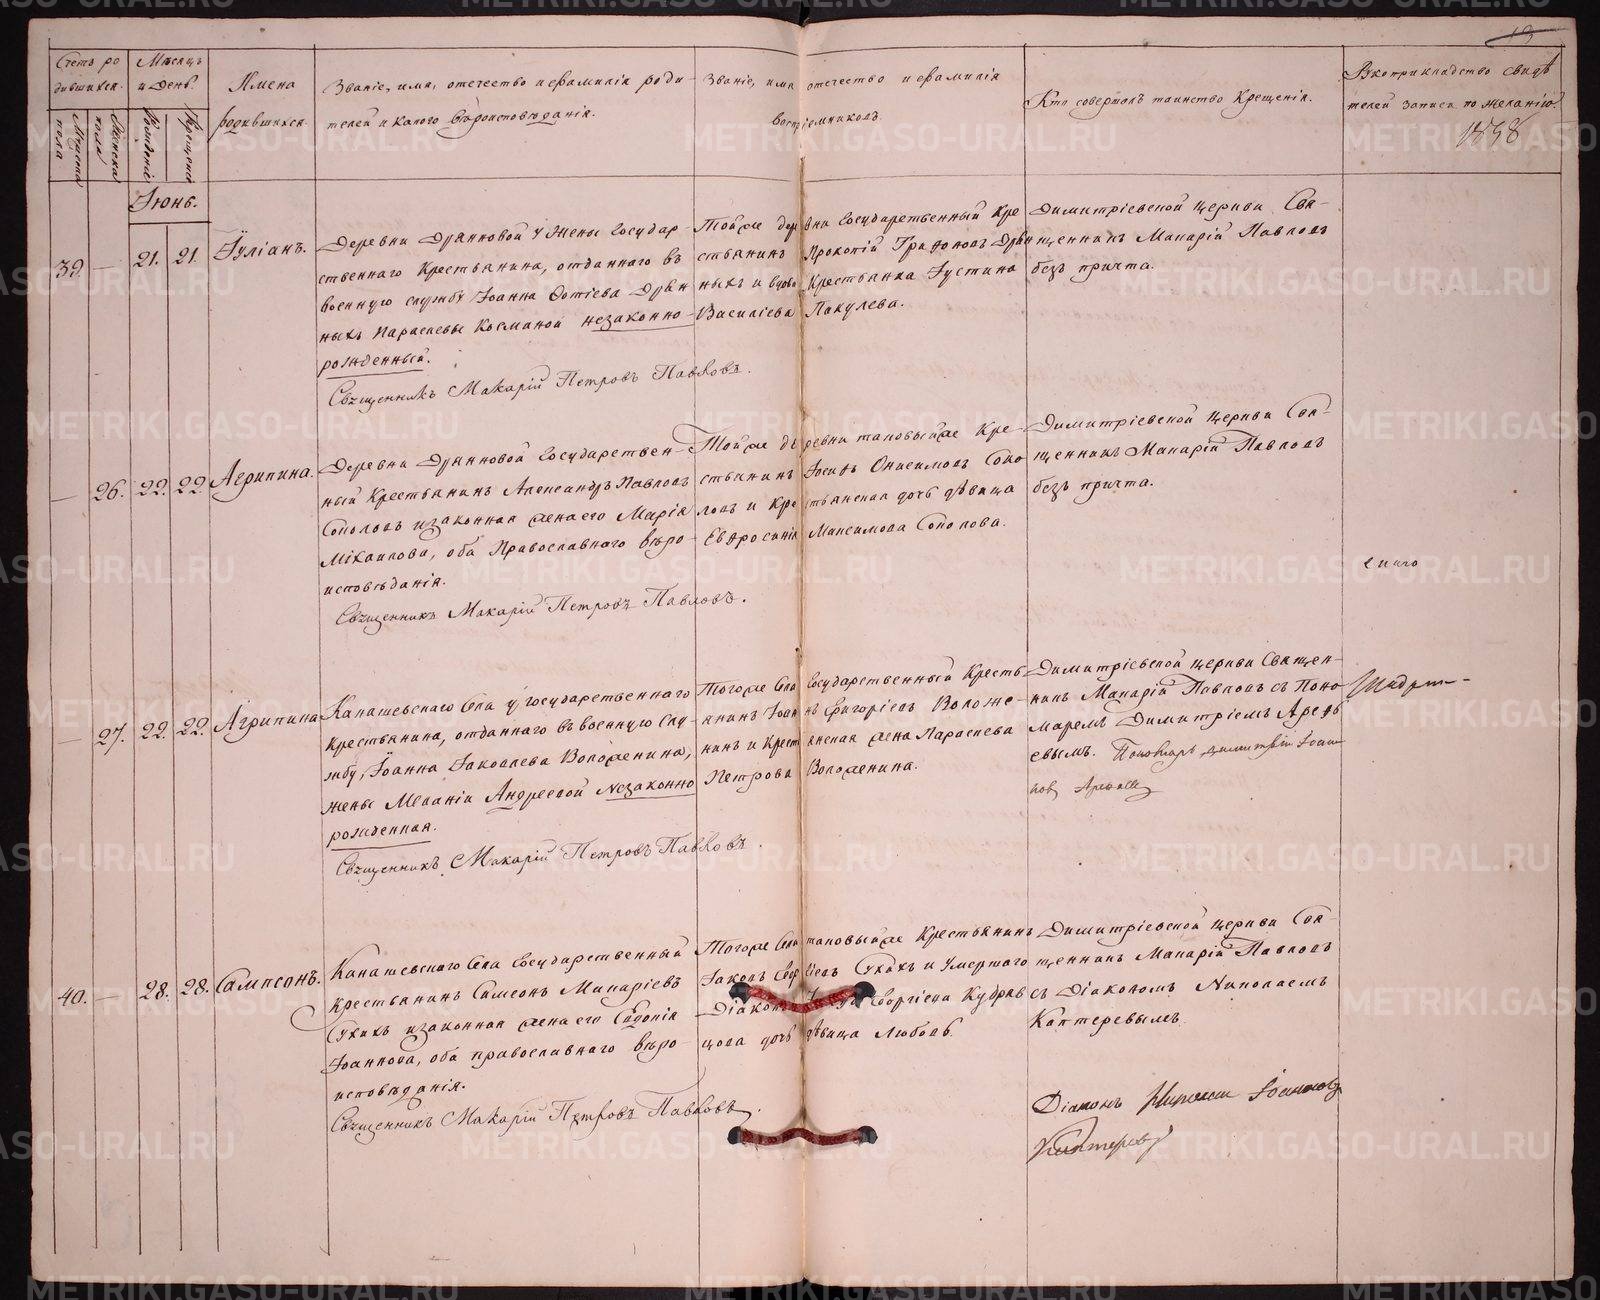 Счетъ ро
дившихся.
Мужеска
пола
Женска
пола
Мѣсяцъ
и День.
Рожденія
Крещенія
Имена
родившихся.
Званіе, имя, отечество и фамилія роди-
телей и какого вѣроисповѣданія.
Званіе, имя отечество и фамилія
воспріемниковъ.
Кто совершалъ таинство Крещенія.
Рукоприкладство свидѣ
телей записи по желанію.
1858
Іюнь.
39. — 21. 21. Іуліанъ.
Деревни Дрянновой у жены Государ-
ственнаго Крестьянина, отданнаго въ
военную службу Іоанна Дрян
ныхъ Параскевы Косминой незаконно-
рожденный.
Священникъ Макарій Петровъ Павловъ.
Тойже деревни Государственный Кре
стьянинъ Прокопій Дрян
ныхъ и вдова Крестьянка Іустина
Василіева Пакулева.
Димитріевской церкви Свя-
щенникъ Макарій Павловъ
безъ причта.
— 26. 22. 22. Агрипина.
Деревни Дрянновой Государствен-
ный Крестьянинъ Александръ Павловъ
Соколовъ и законная жена его Марія
Михаилова, оба Православнаго вѣро-
исповѣданія.
Священникъ Макарій Петровъ Павловъ.
Тойже деревни таковыйже Кре-
стьянинъ Іосифъ Онисимовъ Соко
ловъ и крестьянская дочь дѣвица
Евфросинія Максимова Соколова.
Димитріевской церкви Свя-
щенникъ Макарій Павловъ
безъ причта.
— 27. 22. 22. Агрипина
Канашевскаго Села у государственнаго
Крестьянина, отданнаго въ военную слу
жбу, Іоанна Іаковлева Воложенина,
жены Меланіи Андреевой незаконно
рожденная.
Священникъ Макарій Петровъ Павловъ.
Тогоже Села Государственный Кресть
янинъ Іоаннъ Григоріевъ Воложе-
нинъ и Крестьянская жена Параскева
Петрова Воложенина.
Димитріевской церкви Священ-
никъ Макарій Павловъ съ Поно
маремъ Димитріемъ Арефь
евымъ. Пономарь Димитрій Іоан
новъ Арефьевъ
40. — 28. 28. Сампсонъ.
Канашевскаго Села Государственный
крестьянинъ Симеонъ Макаріевъ
Сухихъ и законная жена его Евдокія
Іоаннова, оба православнаго вѣро-
исповѣданія.
Священникъ Макарій Петровъ Павловъ.
Тогоже Села таковыйже Крестьянинъ
Іаковъ Сухихъ и Умершаго
Діакона Георгіева Кудряв
цова дочь дѣвица Любовь.
Димитріевской церкви Свя-
щенникъ Макарій Павловъ
съ Діакономъ Николаемъ
Каптеревымъ.
Діаконъ Николай Іоанновъ
Каптеревъ
METRIKI.GASO-URAL.RU